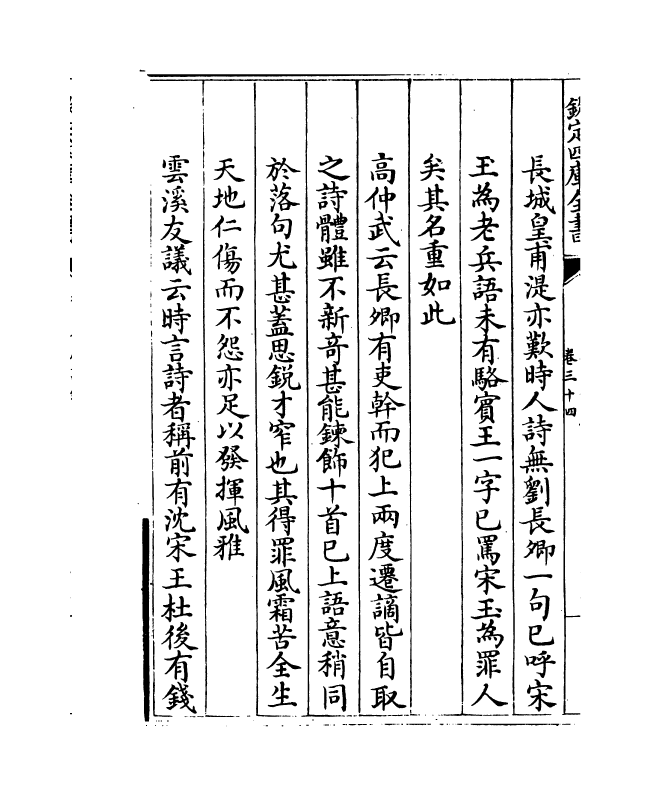 欽定四庫全書
卷三十四
長城皇甫湜亦歎時人詩無劉長卿一句已呼宋
玉為老兵語未有駱賓王一字已罵宋玉為罪人
矣其名重如此
高仲武云長卿有吏幹而犯上兩度遷謫皆自取
之詩體雖不新奇甚能鍊飾十首已上語意稍同
於落句尤甚蓋思銳才窄也其得罪風霜苦全生
天地仁傷而不怨亦足以發揮風雅
雲溪友議云時言詩者稱前有沈宋王杜後有錢